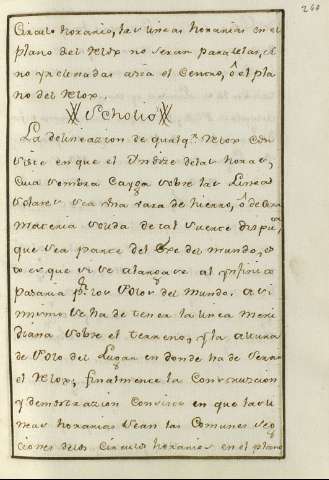 260
Circulo horario, las lineas horarias en el
plano del Relox no seran paralelas, si
no ynclinadas asia el Centro, ô el pla
no del Relox.
Scholio
La delineazion de qualqr. Relox con
siste en que el Yndize delas horas,
cuia sombra cayga sobre las Lineas
solares sea una vara de hierro, ô de otra
materia solida de tal suerte dispta,
que sea parte del Exe del mundo, es
to es que si se alargase al ynfinito
pasaria pr. los Polos del mundo. asi
mismo se ha de tener la linea meri
diana sobre el terreno, y la altura
de Polo del Lugar en donde ha de servir
el Relox; finalmente la Construzcion
y demostrazion consiste en que las li
neas horarias sean las comunes sec
ciones delos Circulos horarios en el plano